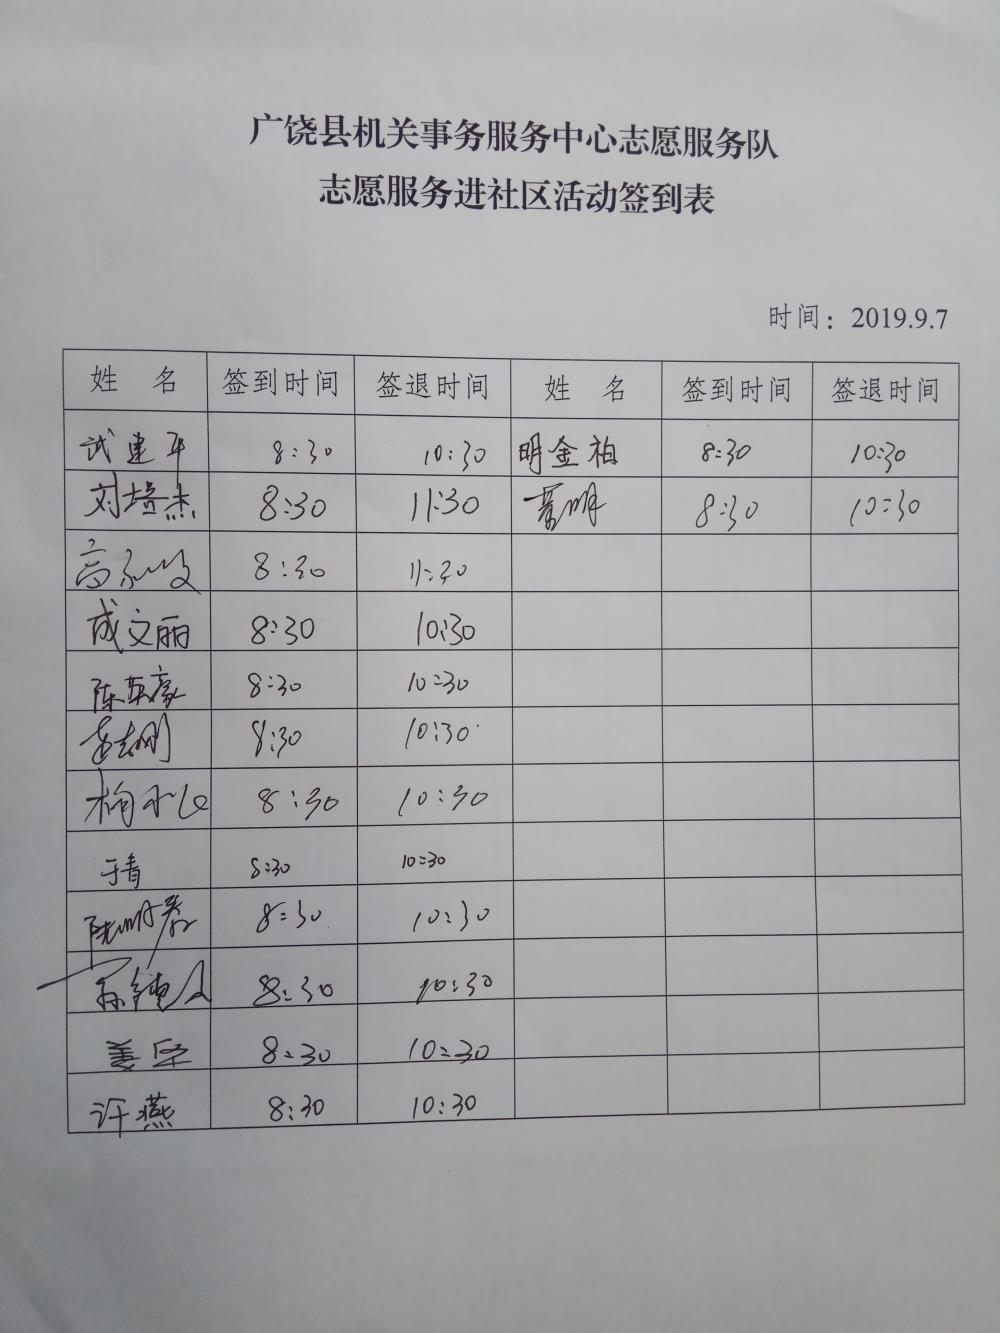 广饶县机关事务服务中心志愿服务队
志愿服务进社区活动签到表
时间：2019.9.7
姓 名 签到时间 签退时间 姓 名 签到时间 签退时间
武建平 8:30 10:30 明金柏 8:30 10:30
刘培杰 8:30 11:30 8:30 10:30
8:30 11:30
成文丽 8:30 10:30
陈英豪 8:30 10:30
8:30 10:30
8:30 10:30
于青 8:30 10:30
8:30 10:30
8:30 10:30
姜 8:30 10:30
许燕 8:30 10:30